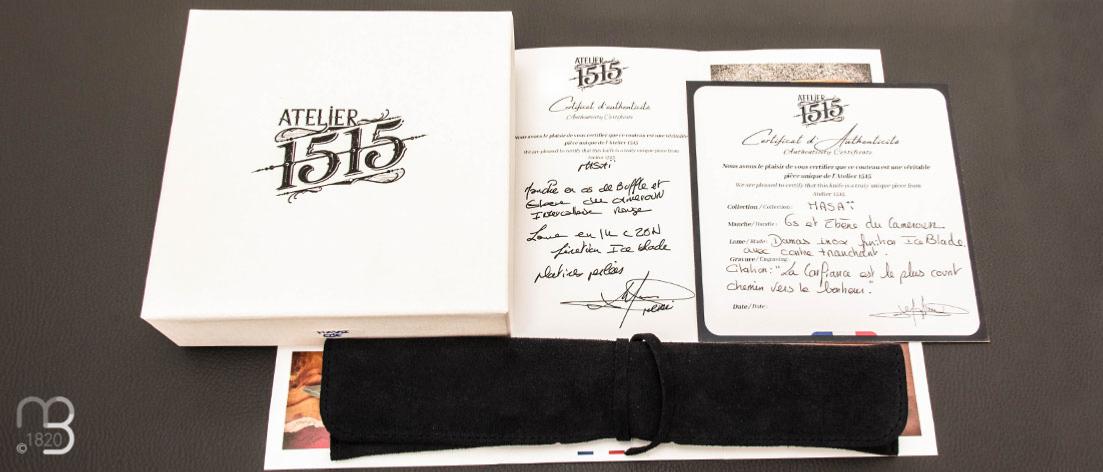 ATELIER
1515
ATELIER
1515
Certificat d'authenticité
Authenticity Certificate
Nous avons le plaisir de vous certifier que ce couteau est une véritable
pièce unique de l'Atelier 1515
We are pleased to certify that this knife is a truly unique piece from
Atelier 1515
MASAÏ
Manche en os de Buffle et
Ebène du Cameroun
Intercalaire Rouge
Lame en 14 C 28N
finition Ice blade
Platines perlées
ATELIER
1515
Certificat d'Authenticité
Authenticity Certificate
Nous avons le plaisir de vous certifier que ce couteau est une véritable
pièce unique de l'Atelier 1515
We are pleased to certify that this knife is a truly unique piece from
Atelier 1515.
Collection / Collection: MASAÏ
Manche / Handle: Os et Ebène du Cameroun
Lame / Blade: Damas inox finition Ice Blade
avec contre tranchant.
Gravure / Engraving:
Citation: "La Confiance est le plus court
chemin vers le bonheur".
Date / Date:
© 1820